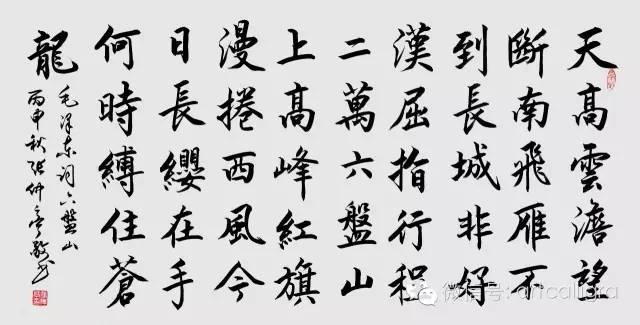 天高雲澹望
斷南飛雁不
到長城非好
漢屈指行程
二萬六盤山
上高峰紅旗
漫捲西風今
日長纓在手
何時縛住蒼
龍
毛泽东词六盤山
丙申秋张仲亭敬书
微信号: artcalligra